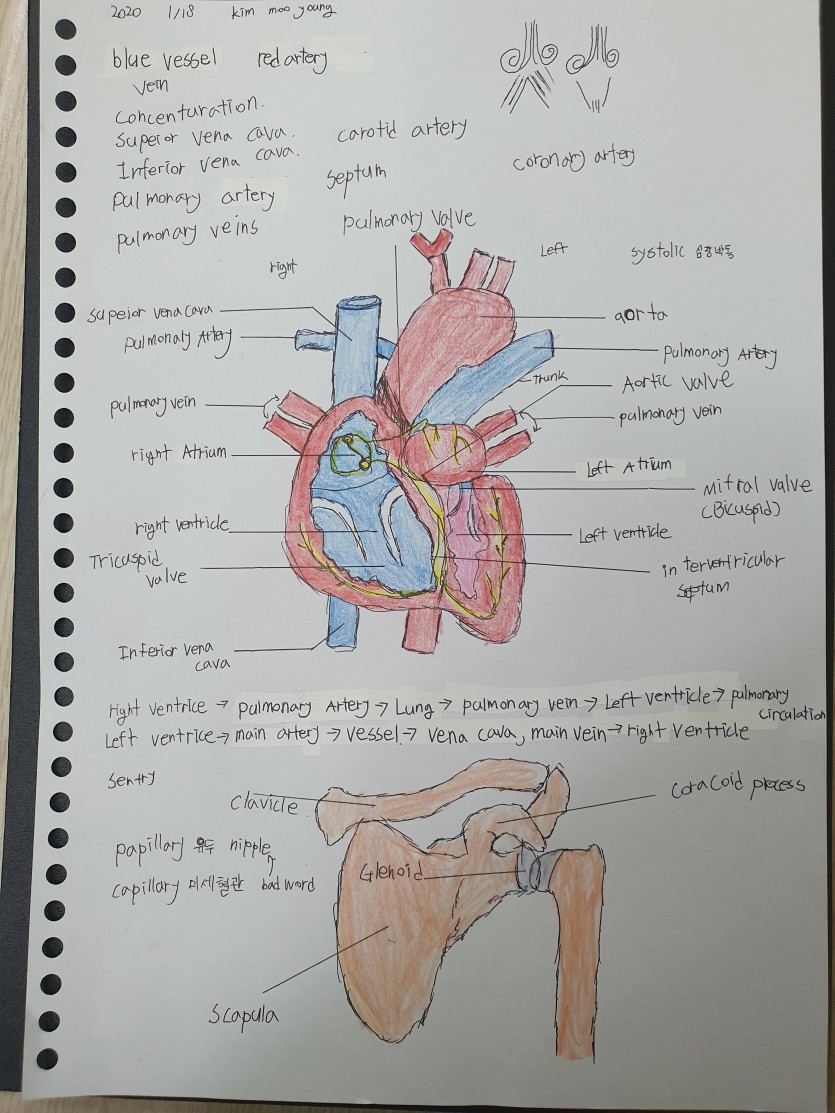 2020 1/18 kim moo young
blue vessel red artery
vein
concenturation.
Supeior vena cava. carotid artery
Inferior vena cava. septum coronary artery
pulmonary artery
pulmonary veins pulmonary valve
right Left systolic 심장박동
Supeior vena cava
pulmonary Artery
pulmonary vein
right Atrium
right ventricle
Tricuspid
valve
Inferior vena
cava
aorta
pulmonary Artery
trunk
Aortic valve
pulmonary vein
Left Atrium
Mitral valve
(Bicuspid)
Left ventricle
interventricular
septum
right ventrice → pulmonary Artery → Lung → pulmonary vein → Left ventricle → pulmonary
circulation
Left ventrice → main artery → vessel → vena cava, main vein → right ventricle
sentry
clavicle
coracoid process
papillary 유두 nipple
capillary 미세혈관 bad word
Glenoid
scapula